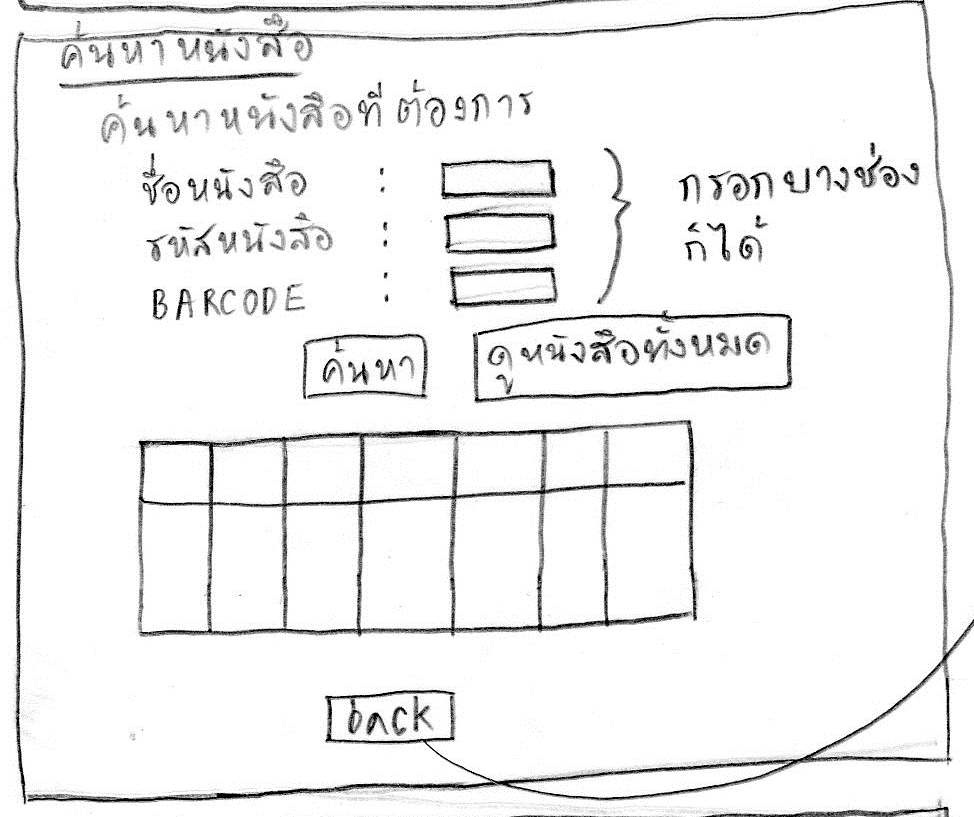 ค้นหาหนังสือ
ค้นหาหนังสือที่ต้องการ
ชื่อหนังสือ :
รหัสหนังสือ :
BARCODE :
กรอกบางช่อง
ก็ได้
ค้นหา
ดูหนังสือทั้งหมด
back